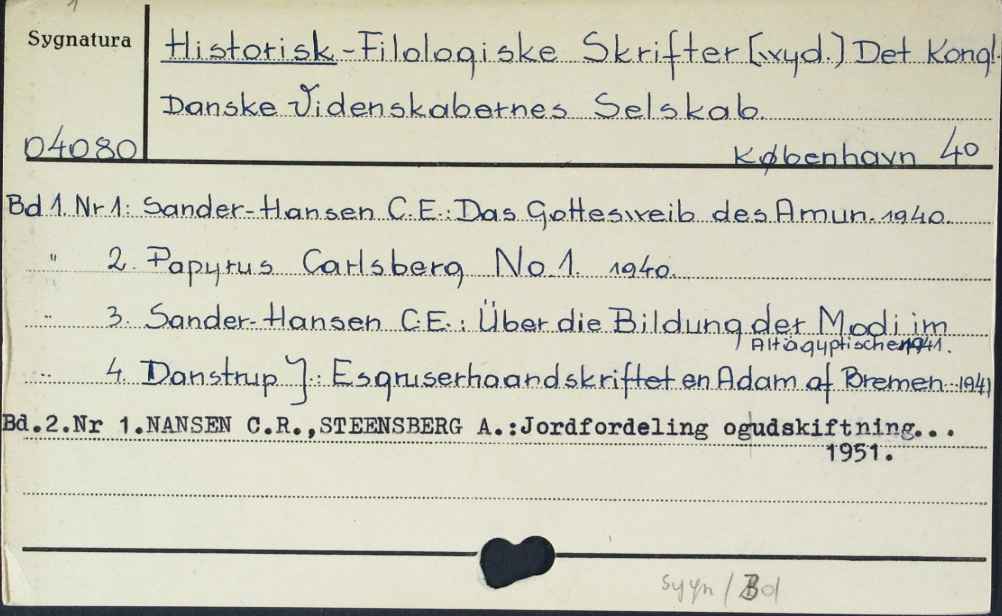 1
Sygnatura
Historisk-Filologiske Skrifter [wyd.] Det Kongl.
Danske Videnskabernes Selskab.
04080
København 40
Bd 1. Nr 1: Sander-Hansen C.E.: Das Gottesweib des Amun. 1940.
" 2. Papyrus Carlsberg No 1. 1940.
" 3. Sander-Hansen C.E.: Über die Bildung der Modi im
Altägyptischen 1941.
" 4. Danstrup J.: Esqruserhaandskriftet en Adam af Bremen 1941
Bd.2.Nr 1.NANSEN C.R.,STEENSBERG A.:Jordfordeling og udskiftning...
1951.
Sygn / Bd